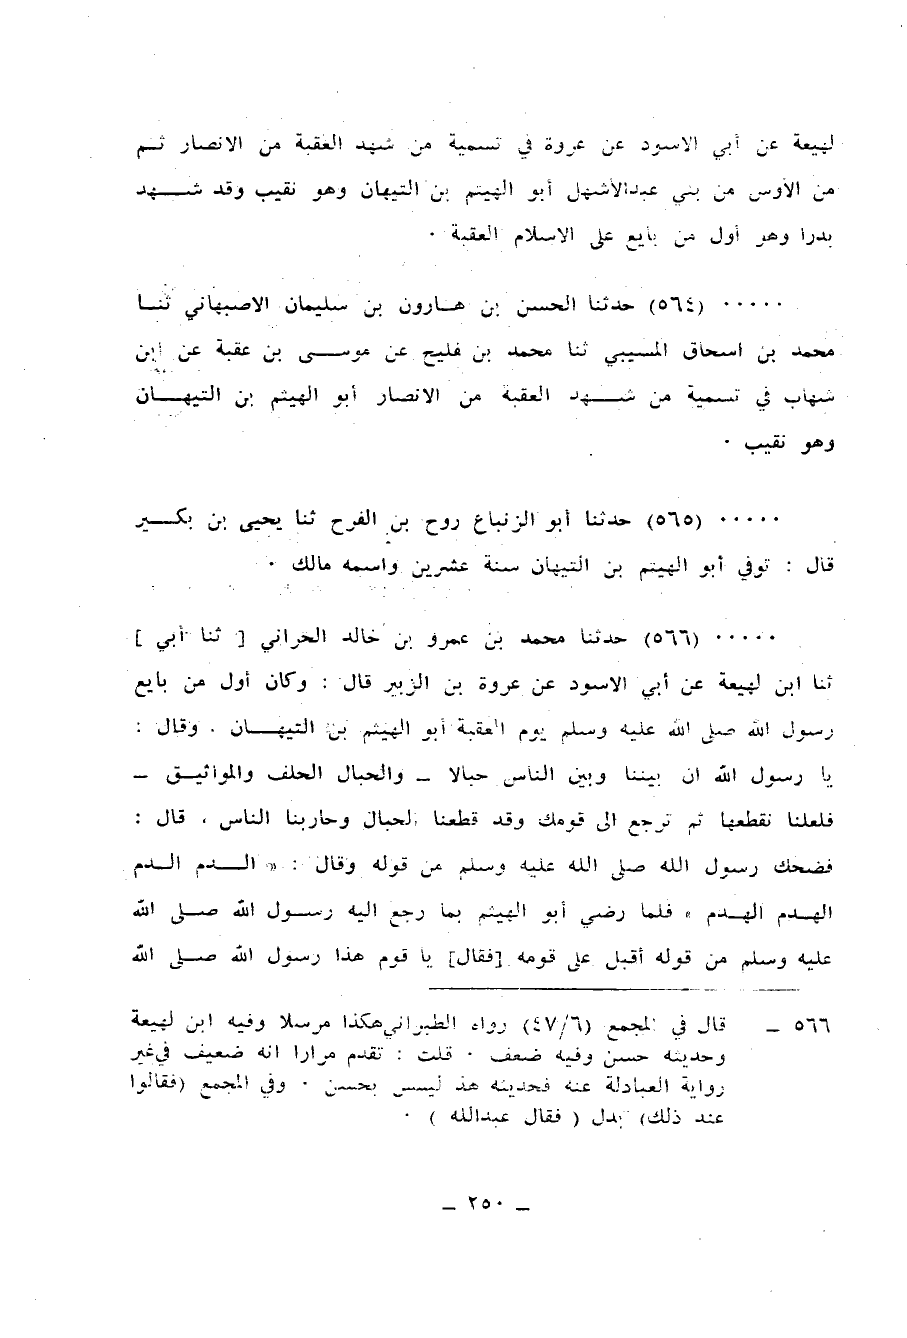 لهيعة عن أبي الاسود عن عروة في تسمية من شهد العقبة من الانصار ثم
من الأوس من بني عبدالأشهل أبو الهيثم بن التيهان وهو نقيب وقد شهد
بدرا وهو أول من بايع على الاسلام العقبة ٠
٠٠٠٠٠ (٥٦٤) حدثنا الحسن بن هارون بن سليمان الاصبهاني ثنا
محمد بن اسحاق المسيبي ثنا محمد بن فليح عن موسى بن عقبة عن ابن
شهاب في تسمية من شهد العقبة من الانصار أبو الهيثم بن التيهان
وهو نقيب ٠
٠٠٠٠٠ (٥٦٥) حدثنا أبو الزنباع روح بن الفرح ثنا يحيى بن بكير
قال : توفي أبو الهيثم بن التيهان سنة عشرين واسمه مالك ٠
٠٠٠٠٠ (٥٦٦) حدثنا محمد بن عمرو بن خالد الحراني [ ثنا أبي ]
ثنا ابن لهيعة عن أبي الاسود عن عروة بن الزبير قال : وكان أول من بايع
رسول الله صلى الله عليه وسلم يوم العقبة أبو الهيثم بن التيهان ٠ وقال :
يا رسول الله ان بيننا وبين الناس حبالا ــ والحبال الحلف والمواثيق ــ
فلعلنا نقطعها ثم ترجع الى قومك وقد قطعنا الحبال وحاربنا الناس ، قال :
فضحك رسول الله صلى الله عليه وسلم من قوله وقال : « الدم الدم
الهدم الهدم » فلما رضي أبو الهيثم بما رجع اليه رسول الله صلى الله
عليه وسلم من قوله أقبل على قومه [فقال] يا قوم هذا رسول الله صلى الله
٥٦٦ ــ قال في المجمع (٤٧/٦) رواه الطبراني هكذا مرسلا وفيه ابن لهيعة
وحديثه حسن وفيه ضعف ٠ قلت : تقدم مرارا انه ضعيف في غير
رواية العبادلة عنه فحديثه هذ ليس بحسن ٠ وفي المجمع (فقالوا
عند ذلك) بدل ( فقال عبدالله ) ٠
ــ ٢٥٠ ــ